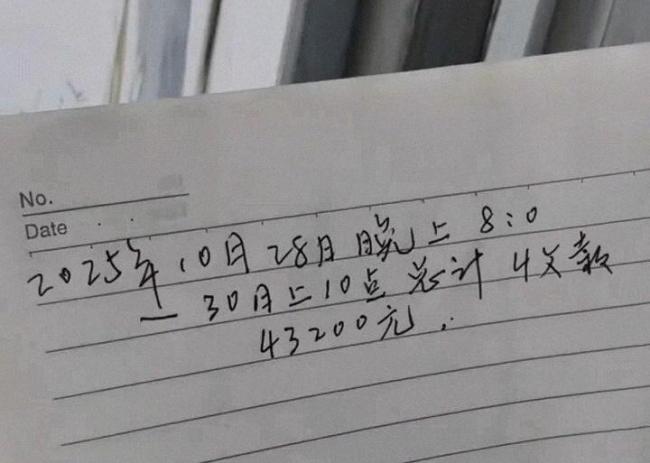 No.
Date
2025年10月28日晚上8:0
一30日上10点总计收款
43200元.